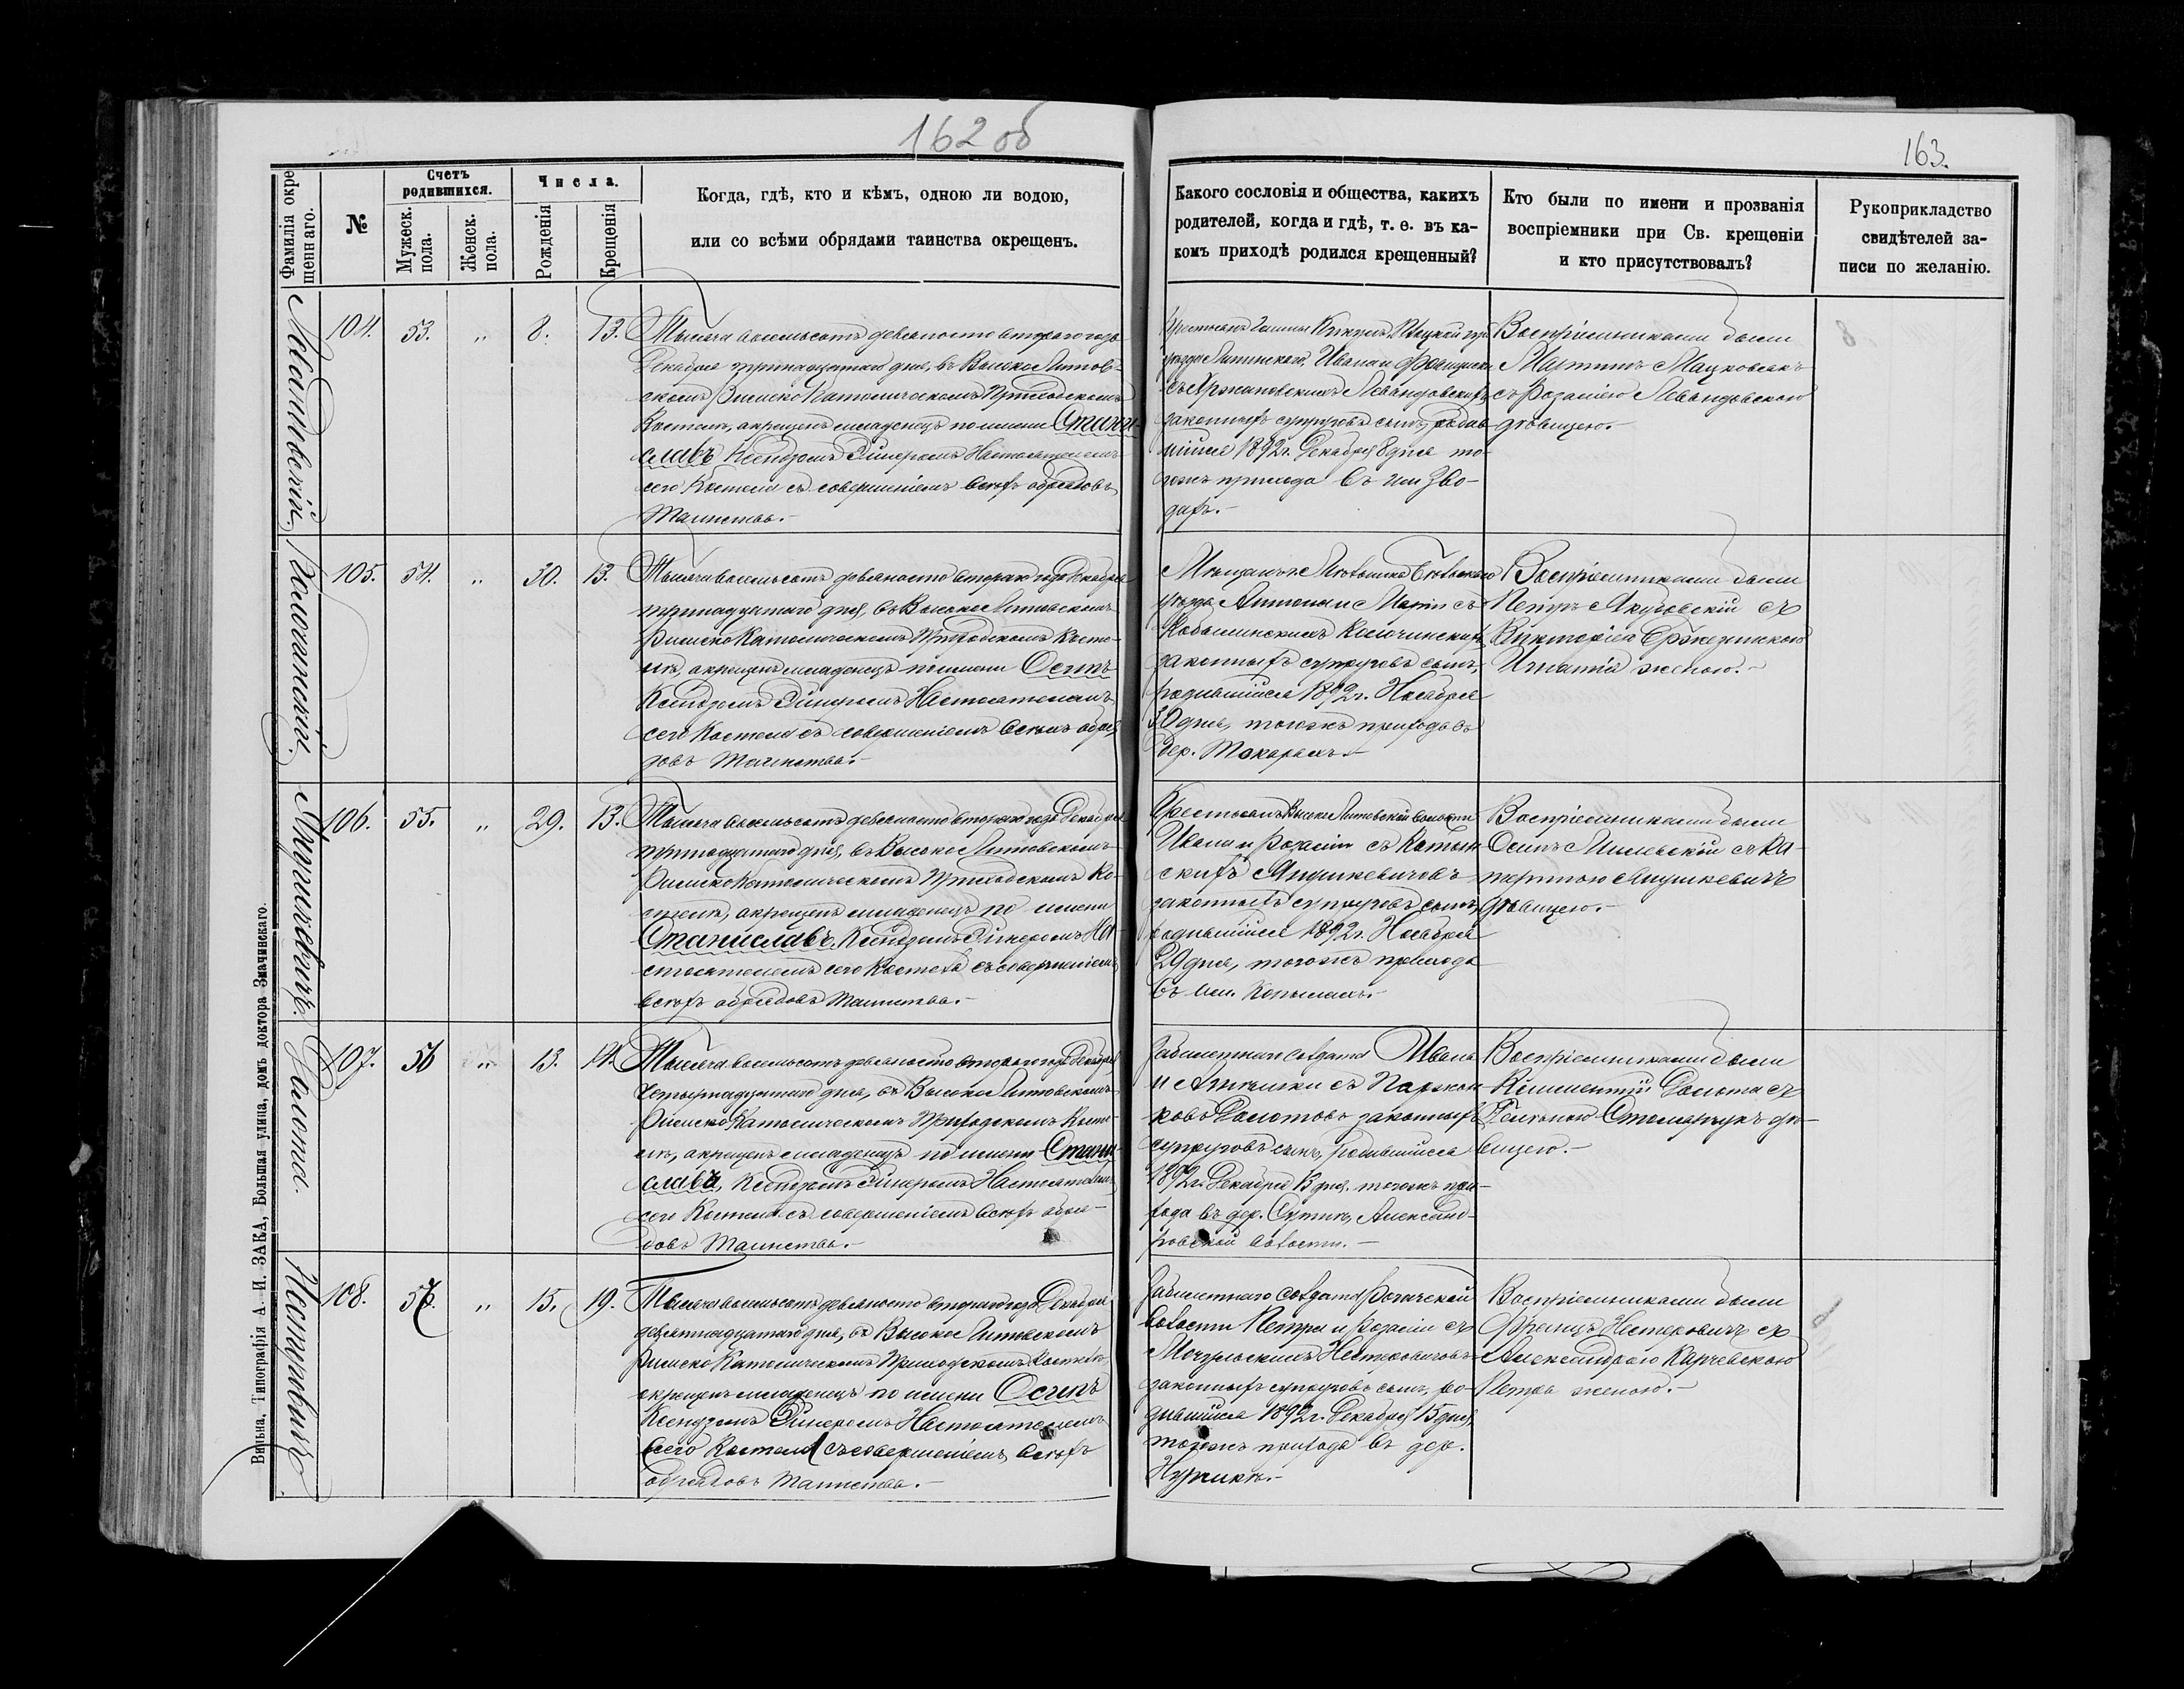 162 об
163.
Фамилія окре
щеннаго.
№
Счетъ
родившихся.
Мужеск.
пола.
Женск.
пола.
Числа.
Рожденія
Крещенія
Когда, гдѣ, кто и кѣмъ, одною ли водою,
или со всѣми обрядами таинства окрещенъ.
Какого сословія и общества, какихъ
родителей, когда и гдѣ, т. е. въ ка-
комъ приходѣ родился крещенный?
Кто были по имени и прозванія
воспріемники при Св. крещеніи
и кто присутствовалъ?
Рукоприкладство
свидѣтелей за-
писи по желанію.
104.
53.
"
8.
13.
Тысяча восемьсотъ девяносто втораго года
Декабря тринадцатаго дня, въ Высоко Литов-
скомъ Римско Католическомъ Приходскомъ
Костелѣ, окрещенъ младенецъ по имени Стани-
славъ Ксендзомъ Настоятелемъ
сего Костела съ совершеніемъ всѣхъ обрядовъ
Таинства.-
Ивана и
Левандовскихъ
законныхъ супруговъ сынъ, родив-
шійся 1892г. Декабря 8 дня то-
гожъ прихода въ им. Зво-
дахъ.-
Воспріемниками были
Мартинъ Мацковякъ
съ Розаліею Левандовскою
дѣвицею.-
8
105.
54.
"
30.
13.
Тысяча восемьсотъ девяносто втораго года Декабря
тринадцатаго дня, въ Высоко Литовскомъ
Римско Католическомъ Приходскомъ Косте-
лѣ, окрещенъ младенецъ по имени Осипъ
Ксендзомъ Настоятелемъ
сего Костела съ совершеніемъ всѣхъ обря-
довъ Таинства.-
Антона и Маріи съ
законныхъ супруговъ сынъ,
родившійся 1892г. Ноября
30 дня, тогожъ прихода въ
дер. Токаряхъ.-
Воспріемниками были
Петръ Якубовскій съ
Викторіею
Игнатія женою.-
Янушкевичъ.
106.
55.
"
29.
13.
Тысяча восемьсотъ девяносто втораго года Декабря
тринадцатаго дня, въ Высоко Литовскомъ
Римско Католическомъ Приходскомъ Ко-
стелѣ, окрещенъ младенецъ по имени
Станиславъ, Ксендзомъ На-
стоятелемъ сего Костела съ совершеніемъ
всѣхъ обрядовъ Таинства.-
Крестьянъ Высоко Литовской волости
Ивана и Розаліи съ
Янушкевичовъ
законныхъ супруговъ сынъ,
родившійся 1892г. Ноября
29 дня, тогожъ прихода
въ им. Копылахъ.-
Воспріемниками были
Осипъ съ Ка-
Янушкевичъ
дѣвицею.-
Голота.
107.
56
"
13.
14.
Тысяча восемьсотъ девяносто втораго года Декабря
четырнадцатаго дня, въ Высоко Литовскомъ
Римско Католическомъ Приходскомъ Косте-
лѣ, окрещенъ младенецъ по имени Стани-
славъ, Ксендзомъ Настоятелемъ
сего Костела съ совершеніемъ всѣхъ обря-
довъ Таинства.-
Забилетнаго солдата Ивана
и съ
Голотовъ законныхъ
супруговъ сынъ, родившійся
1892г. Декабря 13 дня. тогожъ при-
хода въ дер. Александ-
ровской волости.-
Воспріемниками были
Климентій Голота съ
Столярчукъ дѣ-
вицею.-
Нестеровичъ.
108.
57.
"
15.
19.
Тысяча восемьсотъ девяносто втораго года Декабря
девятнадцатаго дня, въ Высоко Литовскомъ
Римско Католическомъ Приходскомъ Костелѣ,
окрещенъ младенецъ по имени Осипъ
Ксендзомъ Настоятелемъ
сего Костела съ совершеніемъ всѣхъ
обрядовъ Таинства.-
Забилетнаго солдата
волости Петра и Розаліи съ
Нестеровичовъ
законныхъ супруговъ сынъ, ро-
дившійся 1892г. Декабря 15 дня,
тогожъ прихода въ дер.
Воспріемниками были
Францъ Нестеровичъ съ
Александрою Карчевскою
Петра женою.-
Вильна. Типографія А. И. ЗАКА, Большая улица, домъ доктора Змачинскаго.